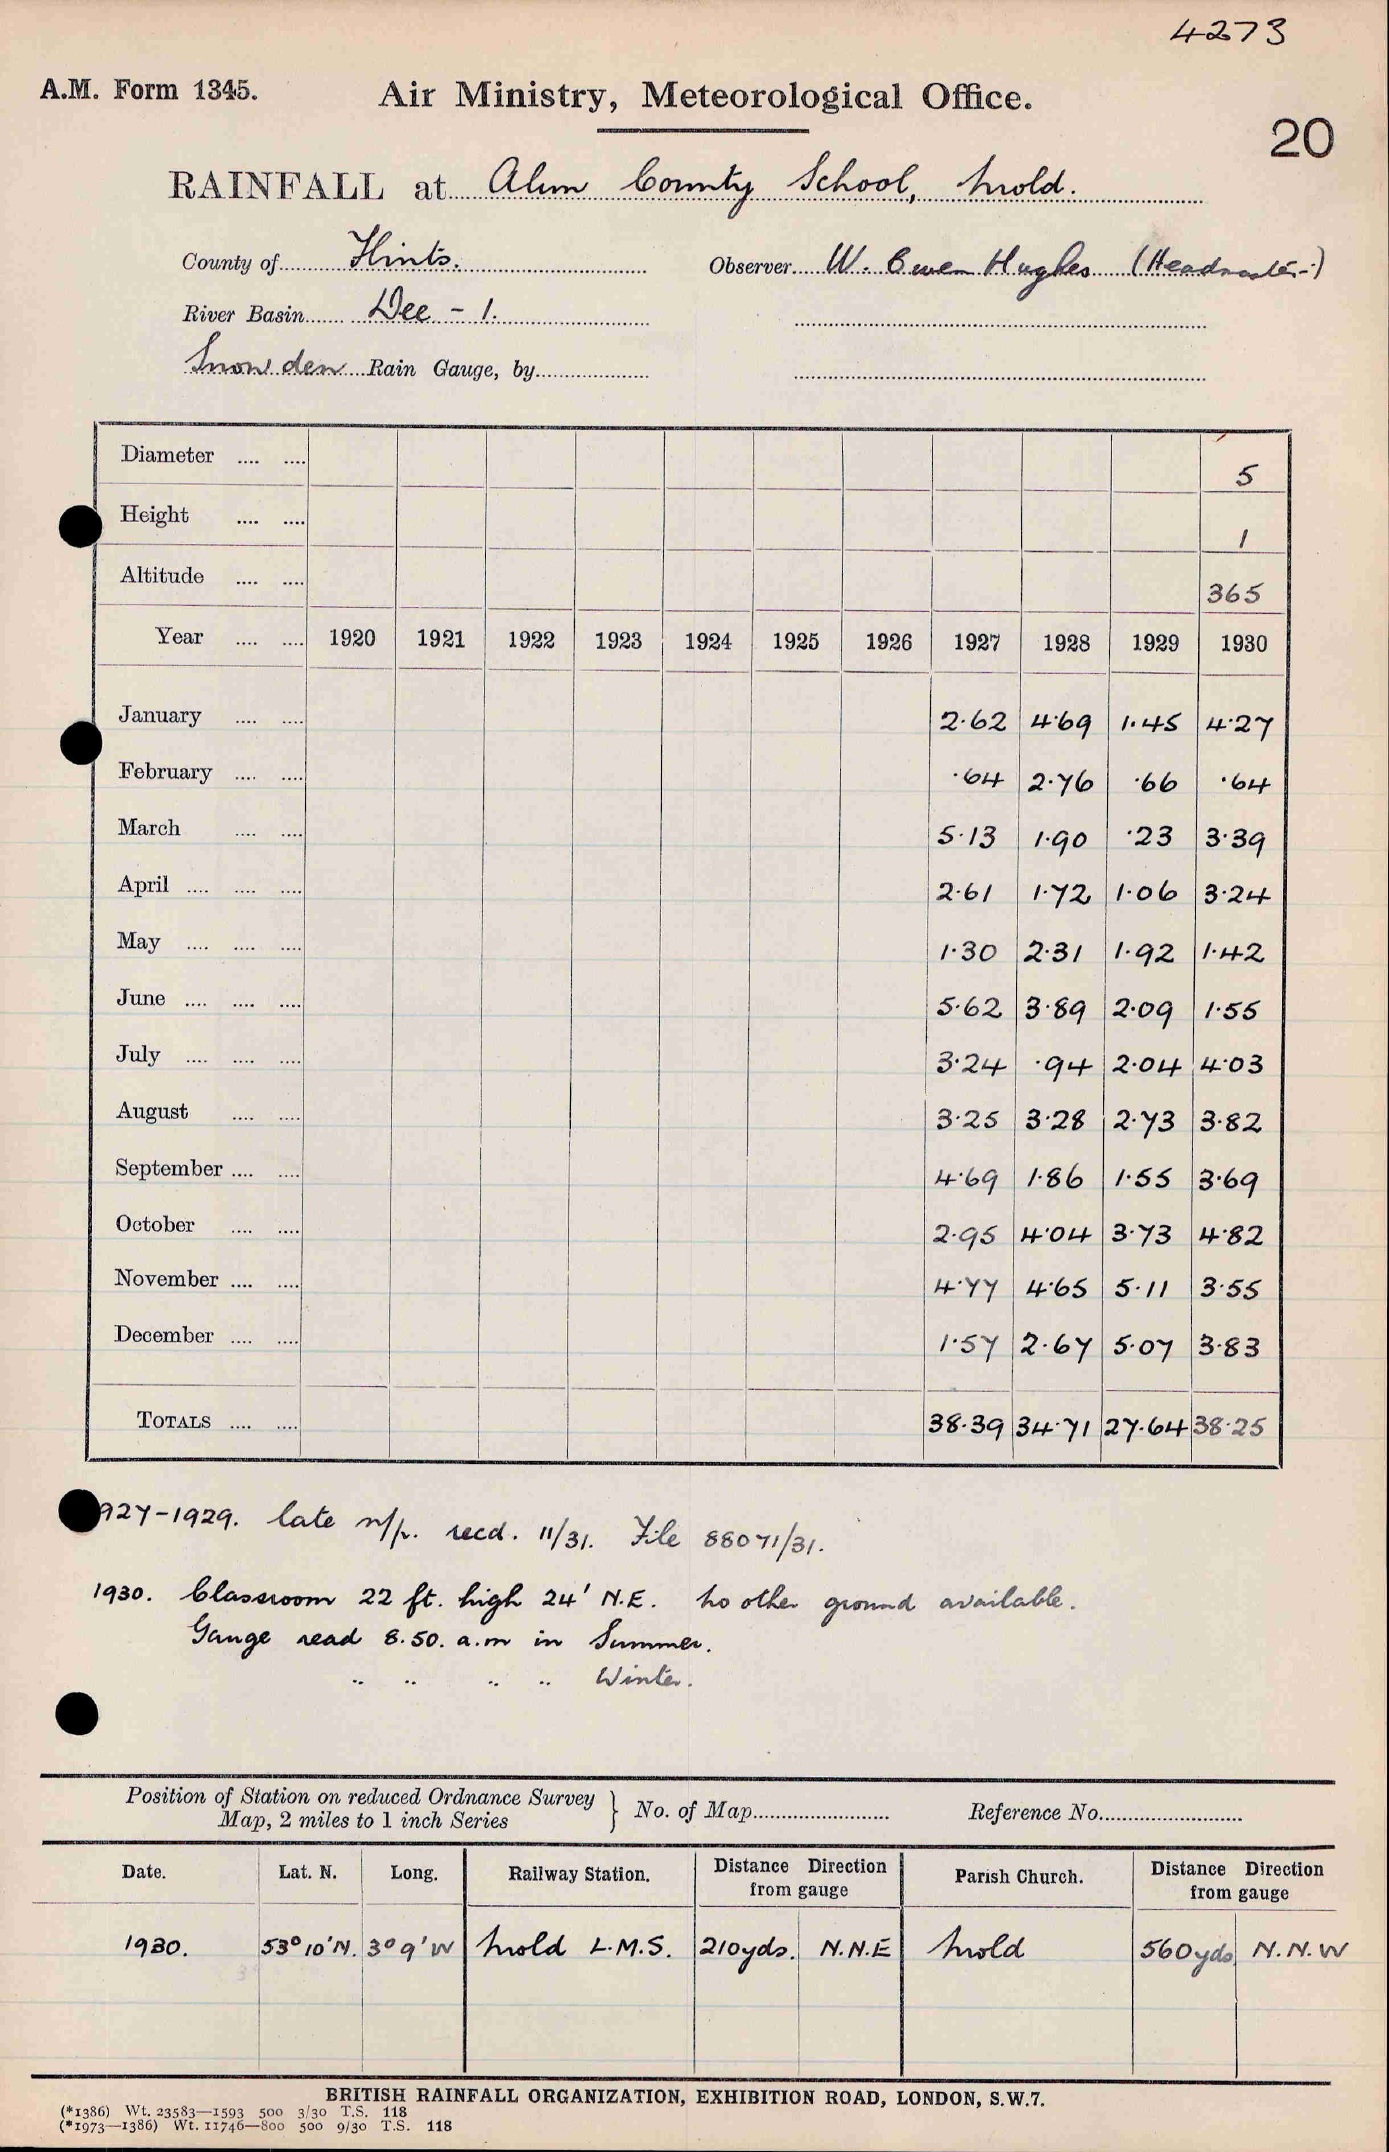 4273
A.M. Form 1345. Air Ministry, Meteorological Office.
20
RAINFALL at Alun County School, Mold.
County of Flints. Observer W. Owen Hughes (Headmaster)
River Basin Dee - 1.
Snowden Rain Gauge, by
Diameter .... .... 5
Height .... .... 1
Altitude .... .... 365
Year .... .... 1920 1921 1922 1923 1924 1925 1926 1927 1928 1929 1930
January .... .... 2.62 4.69 1.45 4.27
February .... .... .64 2.76 .66 .64
March .... .... 5.13 1.90 .23 3.39
April .... .... .... 2.61 1.72 1.06 3.24
May .... .... .... 1.30 2.31 1.92 1.42
June .... .... .... 5.62 3.89 2.09 1.55
July .... .... .... 3.24 .94 2.04 4.03
August .... .... 3.25 3.28 2.73 3.82
September .... .... 4.69 1.86 1.55 3.69
October .... .... 2.95 4.04 3.73 4.82
November .... .... 4.77 4.65 5.11 3.55
December .... .... 1.57 2.67 5.07 3.83
TOTALS .... .... 38.39 34.71 27.64 38.25
927-1929. late n/p. recd. 11/31. File 88071/31.
1930. Classroom 22 ft. high 24' N.E. No other ground available.
Gauge read 8.50. a.m in Summer.
" " " " Winter.
Position of Station on reduced Ordnance Survey
Map, 2 miles to 1 inch Series } No. of Map Reference No.
Date. Lat. N. Long. Railway Station. Distance Direction from gauge Parish Church. Distance Direction from gauge
1930. 53° 10' N. 3° 9' W Mold L.M.S. 210 yds. N.N.E Mold 560 yds N.N.W
BRITISH RAINFALL ORGANIZATION, EXHIBITION ROAD, LONDON, S.W.7.
(*1386) Wt. 23583—1593 500 3/30 T.S. 118
(*1973—1386) Wt. 11746—800 500 9/30 T.S. 118